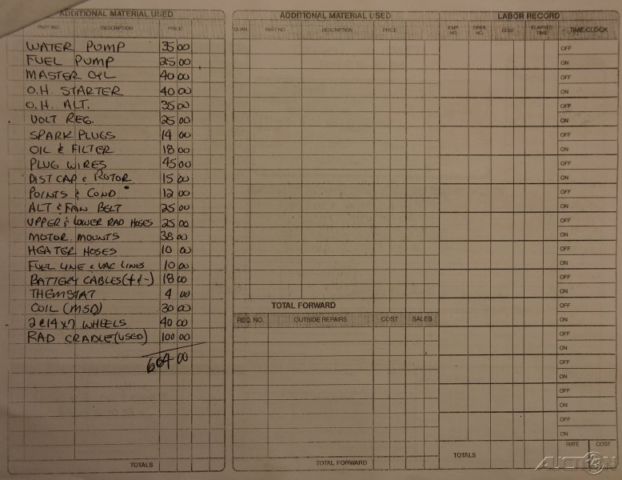 ADDITIONAL MATERIAL USED
PART NO. DESCRIPTION PRICE
WATER PUMP 35 00
FUEL PUMP 25 00
MASTER CYL 40 00
O.H. STARTER 40 00
O.H. ALT. 35 00
VOLT REG. 25 00
SPARK PLUGS 14 00
OIL & FILTER 18 00
PLUG WIRES 45 00
DIST CAP & ROTOR 15 00
POINTS & COND 12 00
ALT & FAN BELT 25 00
UPPER & LOWER RAD HOSES 25 00
MOTOR MOUNTS 38 00
HEATER HOSES 10 00
FUEL LINE & VAC LINES 10 00
BATTERY CABLES (+ & -) 18 00
THEMSTAT 4 00
COIL (MSD) 30 00
2 @ 14 x 7 WHEELS 40 00
RAD CRADLE (USED) 100 00
604 00
TOTALS
ADDITIONAL MATERIAL USED
QUAN. PART NO. DESCRIPTION PRICE
TOTAL FORWARD
REQ. NO. OUTSIDE REPAIRS COST SALES
TOTAL FORWARD
LABOR RECORD
EMP. NO. OPER. NO. ELAPSED TIME TIME CLOCK
OFF
ON
OFF
ON
OFF
ON
OFF
ON
OFF
ON
OFF
ON
OFF
ON
OFF
ON
OFF
ON
OFF
ON
OFF
ON
OFF
ON
OFF
ON
OFF
ON
RATE COST
TOTALS
AUCTION